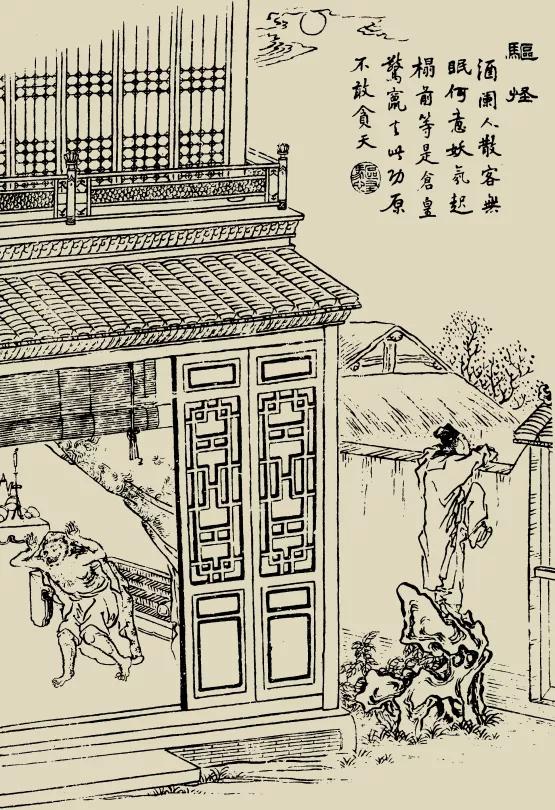 驅怪
酒闌人散客無
眠何意妖氛起
榻前等是倉皇
驚竄去此功原
不敢貪天